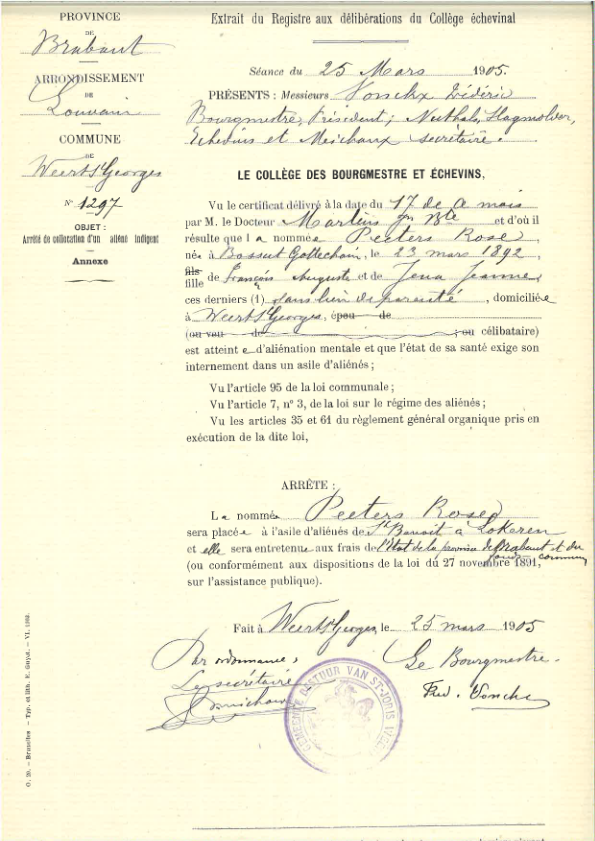 PROVINCE
DE
Brabant
ARRONDISSEMENT
DE
Louvain
COMMUNE
DE
Weert St Georges
N° 1297
OBJET :
Arrêté de collocation d'un aliéné indigent
Annexe
Extrait du Registre aux délibérations du Collège échevinal
Séance du 25 Mars 1905.
PRÉSENTS : Messieurs Vonckx Frédéric
Bourgmestre, Président; Nuthals,
Echevins et Michaux secrétaire.
LE COLLÈGE DES BOURGMESTRE ET ÉCHEVINS,
Vu le certificat délivré à la date du 17 de ce mois
par M. le Docteur Martens et d'où il
résulte que la nommée Peeters Rose
née à Bossut Gottechain, le 23 mars 1892
fils
fille de François Auguste et de Jeanne
ces derniers (1) sans lien de parenté, domiciliée
à Weert St Georges, épou de
(ou veu de ; ou célibataire)
est atteinte d'aliénation mentale et que l'état de sa santé exige son
internement dans un asile d'aliénés ;
Vu l'article 95 de la loi communale ;
Vu l'article 7, n° 3, de la loi sur le régime des aliénés ;
Vu les articles 35 et 61 du règlement général organique pris en
exécution de la dite loi,
ARRÊTE :
La nommée Peeters Rose
sera placée à l'asile d'aliénés de St Benoît à Lokeren
et elle sera entretenue aux frais de l'état de la province de Brabant et du
fonds commun
(ou conformément aux dispositions de la loi du 27 novembre 1891,
sur l'assistance publique).
Fait à Weert St Georges, le 25 mars 1905
Par ordonnance,
Le secrétaire
Michaux
Le Bourgmestre.
Fréd. Vonckx
GEMEENTE BESTUUR VAN ST-JORIS WEERT
O. 20. — Bruxelles — Typ. et lith. E. Guyot. — VI. 1892.